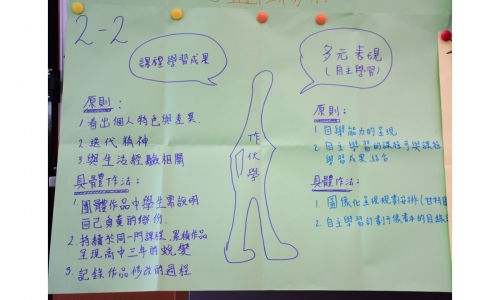 2-2
課程學習成果
原則：
1. 看出個人特色與差異.
2. 迭代精神
3. 與生活經驗相關
具體作法：
1. 團體作品中學生需說明
自己負責的部份.
2. 持續於同一門課程,累積作品
呈現高中三年的蛻變
3. 記錄作品修改的過程
作伙學
多元表現
(自主學習)
原則：
1. 自學能力的呈現
2. 自主學習的課程與課程
學習成果結合
具體作法：
1. 圖像化呈現規劃安排(甘特圖
2. 自主學習計劃書的目錄